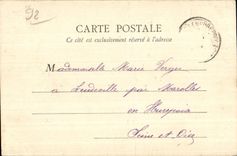 92
CARTE POSTALE
Ce côté est exclusivement réservé à l'adresse
Mademoiselle Marie Verger
à Leudeville par Marolles
en Hurepoix
Seine et Oise